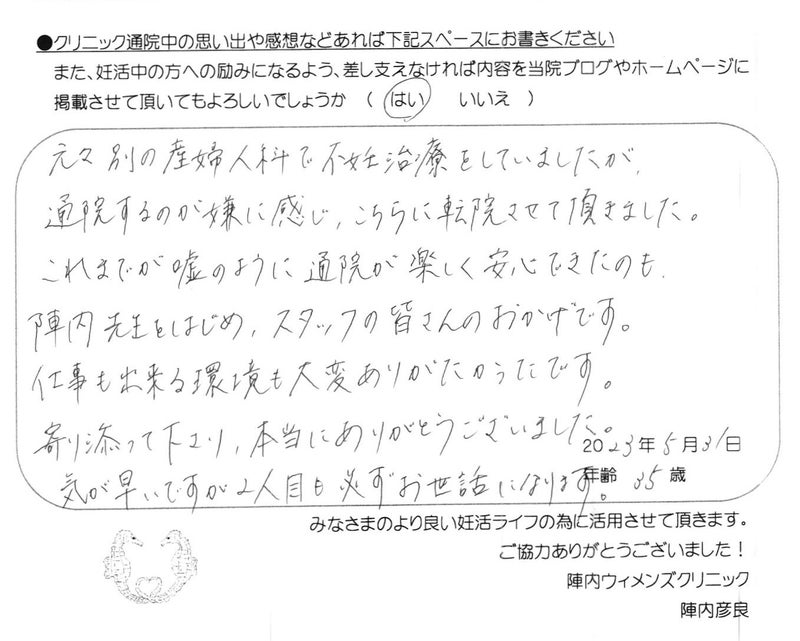 ●クリニック通院中の思い出や感想などあれば下記スペースにお書きください
また、妊活中の方への励みになるよう、差し支えなければ内容を当院ブログやホームページに
掲載させて頂いてもよろしいでしょうか （ はい　いいえ ）
元々別の産婦人科で不妊治療をしていましたが、
通院するのが嫌に感じ、こちらに転院させて頂きました。
これまでが嘘のように通院が楽しく安心できたのも、
陣内先生をはじめ、スタッフの皆さんのおかげです。
仕事も出来る環境も大変ありがたかったです。
寄り添って下さり、本当にありがとうございました。
2023年5月31日
気が早いですが2人目も必ずお世話になります。
年齢 35歳
みなさまのより良い妊活ライフの為に活用させて頂きます。
ご協力ありがとうございました！
陣内ウィメンズクリニック
陣内彦良